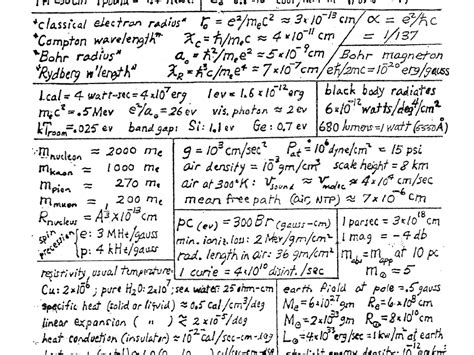 "classical electron radius" r₀ = e²/mₑc² ≈ 3×10⁻¹³ cm
"Compton wavelength" ƛc = ħ/mₑc ≈ 4×10⁻¹¹ cm
"Bohr radius" a₀ = ħ²/mₑe² ≈
"Rydberg w'length" ≈ 7×10⁻⁷ cm
α = e²/ħc
= 1/137
Bohr magneton
eħ/2mc = 10⁻²⁰ erg/gauss
1 cal = 4 watt-sec = 4×10⁷ erg 1 ev = 1.6×10⁻¹² erg
mₑc² = .5 Mev e²/a₀ = 26 ev vis. photon ≈ 2 ev
kT room = .025 ev band gap: Si: 1.1 ev Ge: 0.7 ev
black body radiates
6×10⁻¹² watts/deg⁴/cm²
680 lumens = 1 watt
m nucleon = 2000 mₑ
m kaon = 1000 mₑ
m pion = 270 mₑ
m muon = 200 mₑ
R nucleus = A^⅓ × 10⁻¹³ cm
spin precession e: 3 MHz/gauss
p: 4 kHz/gauss
g = 10³ cm/sec² P at = 10⁶ dyne/cm² = 15 psi
air density = 10⁻³ gm/cm³ scale height = 8 km
air at 300°K: v sound ≈ v molec ≈ 4×10⁴ cm/sec
mean free path (air, NTP) ≈ 7×10⁻⁶ cm
pc (ev) = 300 Br (gauss-cm)
min. ioniz. loss: 2 Mev/gm/cm²
rad. length in air: 36 gm/cm²
1 curie = 4×10¹⁰ disint./sec
1 parsec = 3×10¹⁸ cm
1 mag = -4 db
m abs = m app at 10 pc
m☉ = 5
resistivity, usual temperature
Cu: 2×10⁻⁶; pure H₂O: 2×10⁷; sea water: 25 ohm-cm
specific heat (solid or liquid) ≈ 0.5 cal/cm³/deg
linear expansion ( " ) ≈ 2×10⁻⁵/deg
heat conduction (insulator) ≈ cal/sec-cm-deg
earth field at pole = .5 gauss
M⊕ = 6×10²⁷ gm R⊕ = 6×10⁸ cm
M☉ = 2×10³³ gm
L☉ = 4×10³³ erg/sec = 1 kw/m² at earth
energy density: